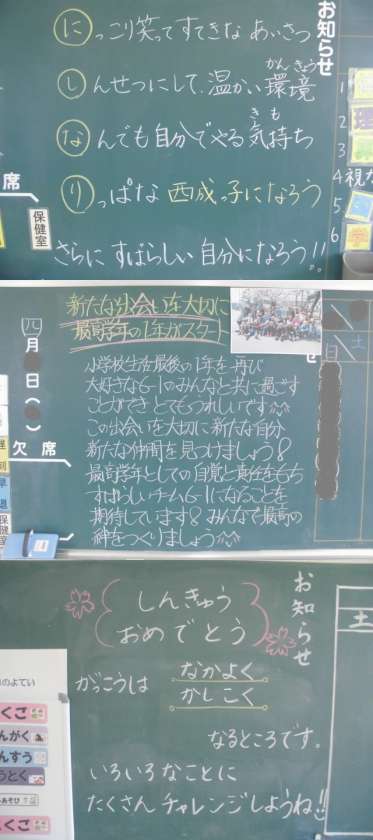 お知らせ
にっこり笑ってすてきな あいさつ
しんせつにして、温かい環境
かんきょう
なんでも自分でやる気持ち
きも
りっぱな 西成っ子になろう
さらに すばらしい 自分になろう!!
席
保健室
1
2
3
4
5
6
理
視
新たな出会いを大切に
最高学年の1年がスタート
四月
日
欠席
遅刻
早退
保健室
小学校生活最後の1年を再び
大好きな6-1のみんなと共に過ごす
ことができとてもうれしいです
この出会いを大切に新たな自分
新たな仲間を見つけましょう!
最高学年としての自覚と責任をもち
すばらしいチーム6-1になることを
期待しています!みんなで最高の
絆をつくりましょう
せ
土
お知らせ
しんきゅう
おめでとう
がっこうは
なかよく
かしこく
なるところです。
いろいろなことに
たくさん チャレンジしようね!!
土
のよてい
くご
んがく
んすう
うとく
あそび
くご